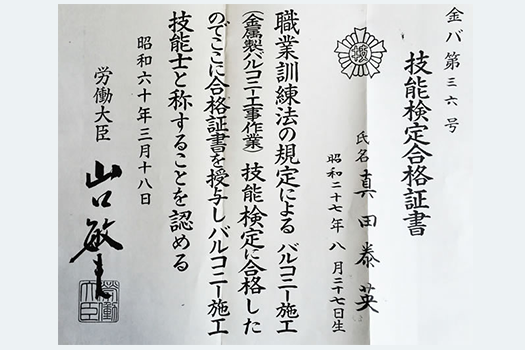 金バ第三六号
技能検定合格証書
氏名 真田泰英
昭和二十七年八月二十七日生
職業訓練法の規定による バルコニー施工
(金属製バルコニー工事作業) 技能検定に合格した
のでここに合格証書を授与しバルコニー施工
技能士と称することを認める
昭和六十年三月十八日
労働大臣 山口敏夫
労働大臣